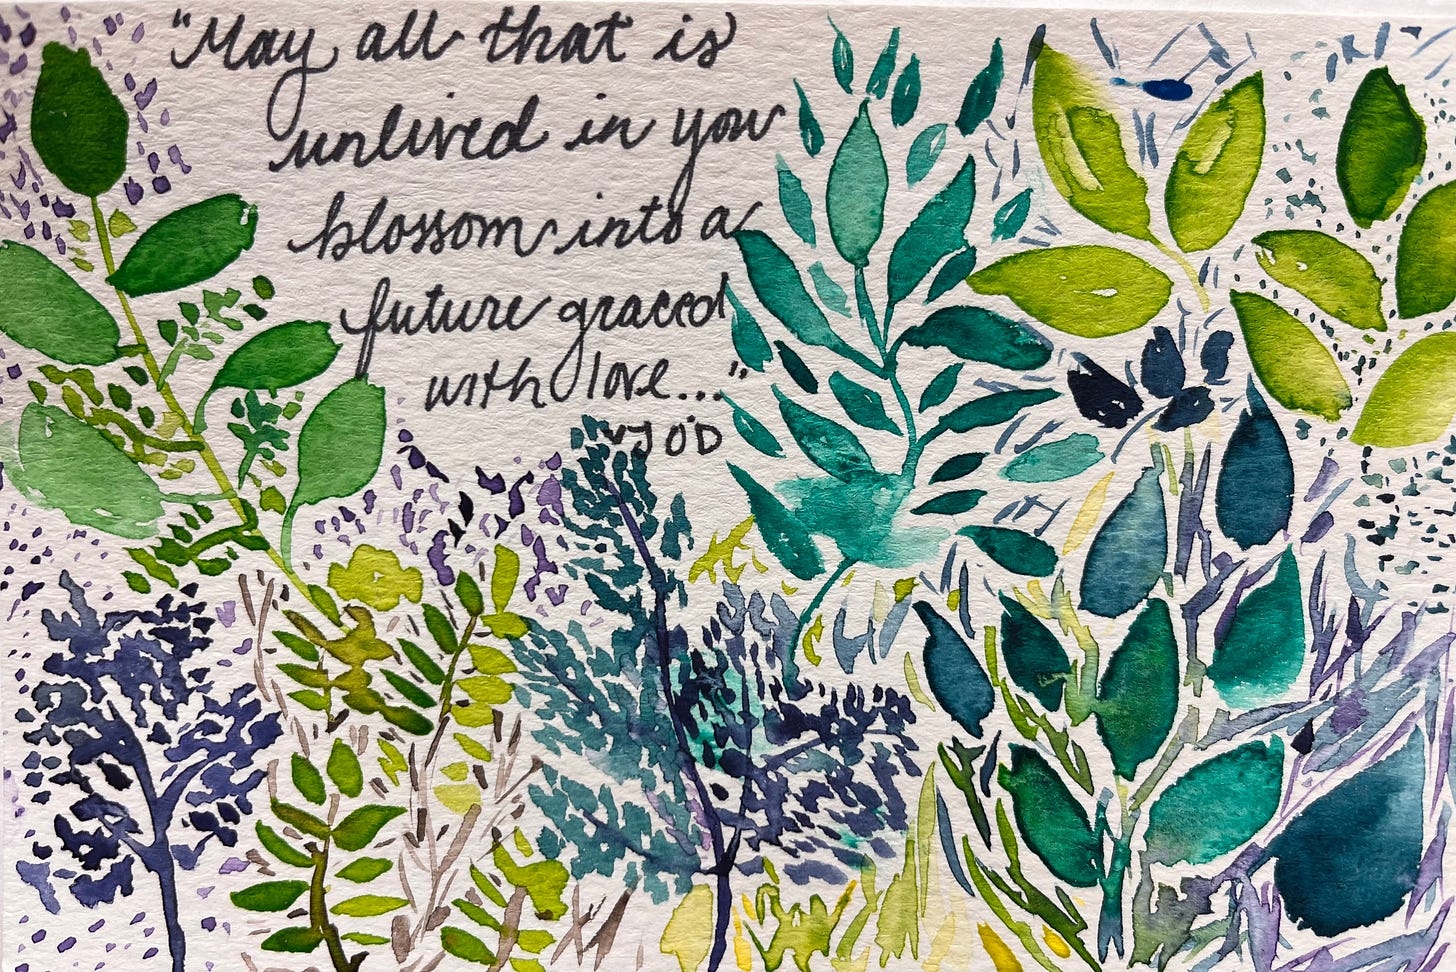 "May all that is
unlived in you
blossom into a
future graced
with love..."
~JO'D